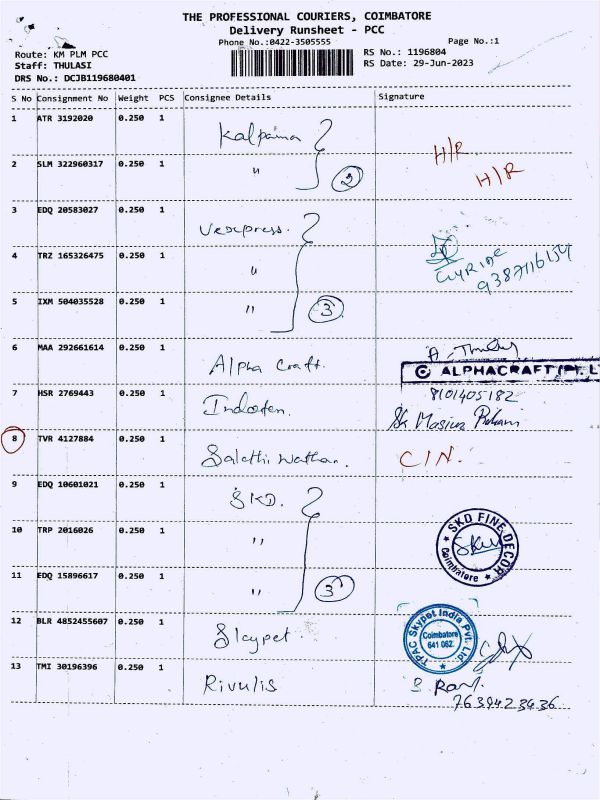 THE PROFESSIONAL COURIERS, COIMBATORE
Delivery Runsheet - PCC
Phone No.:0422-3505555
Page No.:1
Route: KM PLM PCC
RS No.: 1196804
Staff: THULASI
RS Date: 29-Jun-2023
DRS No.: DCJB119680401
S No Consignment No Weight PCS Consignee Details Signature
1 ATR 3192020 0.250 1 Kalpaina
H/R
2 SLM 322960317 0.250 1 " 2
H/R
3 EDQ 20583027 0.250 1 Vexpress.
4 TRZ 165326475 0.250 1 "
9387116154
5 IXM 504035528 0.250 1 " 3
6 MAA 292661614 0.250 1 Alpha Craft.
ALPHACRAFT (P). L
7 HSR 2769443 0.250 1 8101405182
Sk Masiur
8 TVR 4127884 0.250 1 C/N.
9 EDQ 10601021 0.250 1 SKD.
10 TRP 2016026 0.250 1 "
SKD FINE DECOR
Coimbatore
11 EDQ 15896617 0.250 1 " 3
12 BLR 4852455607 0.250 1 Skypet.
TPAC Skypet India Pvt. Ltd
Coimbatore
641 062
13 TMI 30196396 0.250 1 Rivulis
7639423436